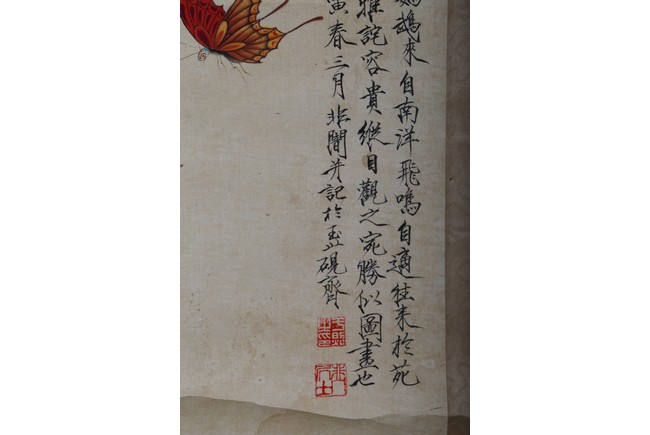 鵡來自南洋飛鳴自適往來於苑
雅詫容貴縱目觀之宛勝似圖畫也
寅春三月非闇并記於玉山硯齋